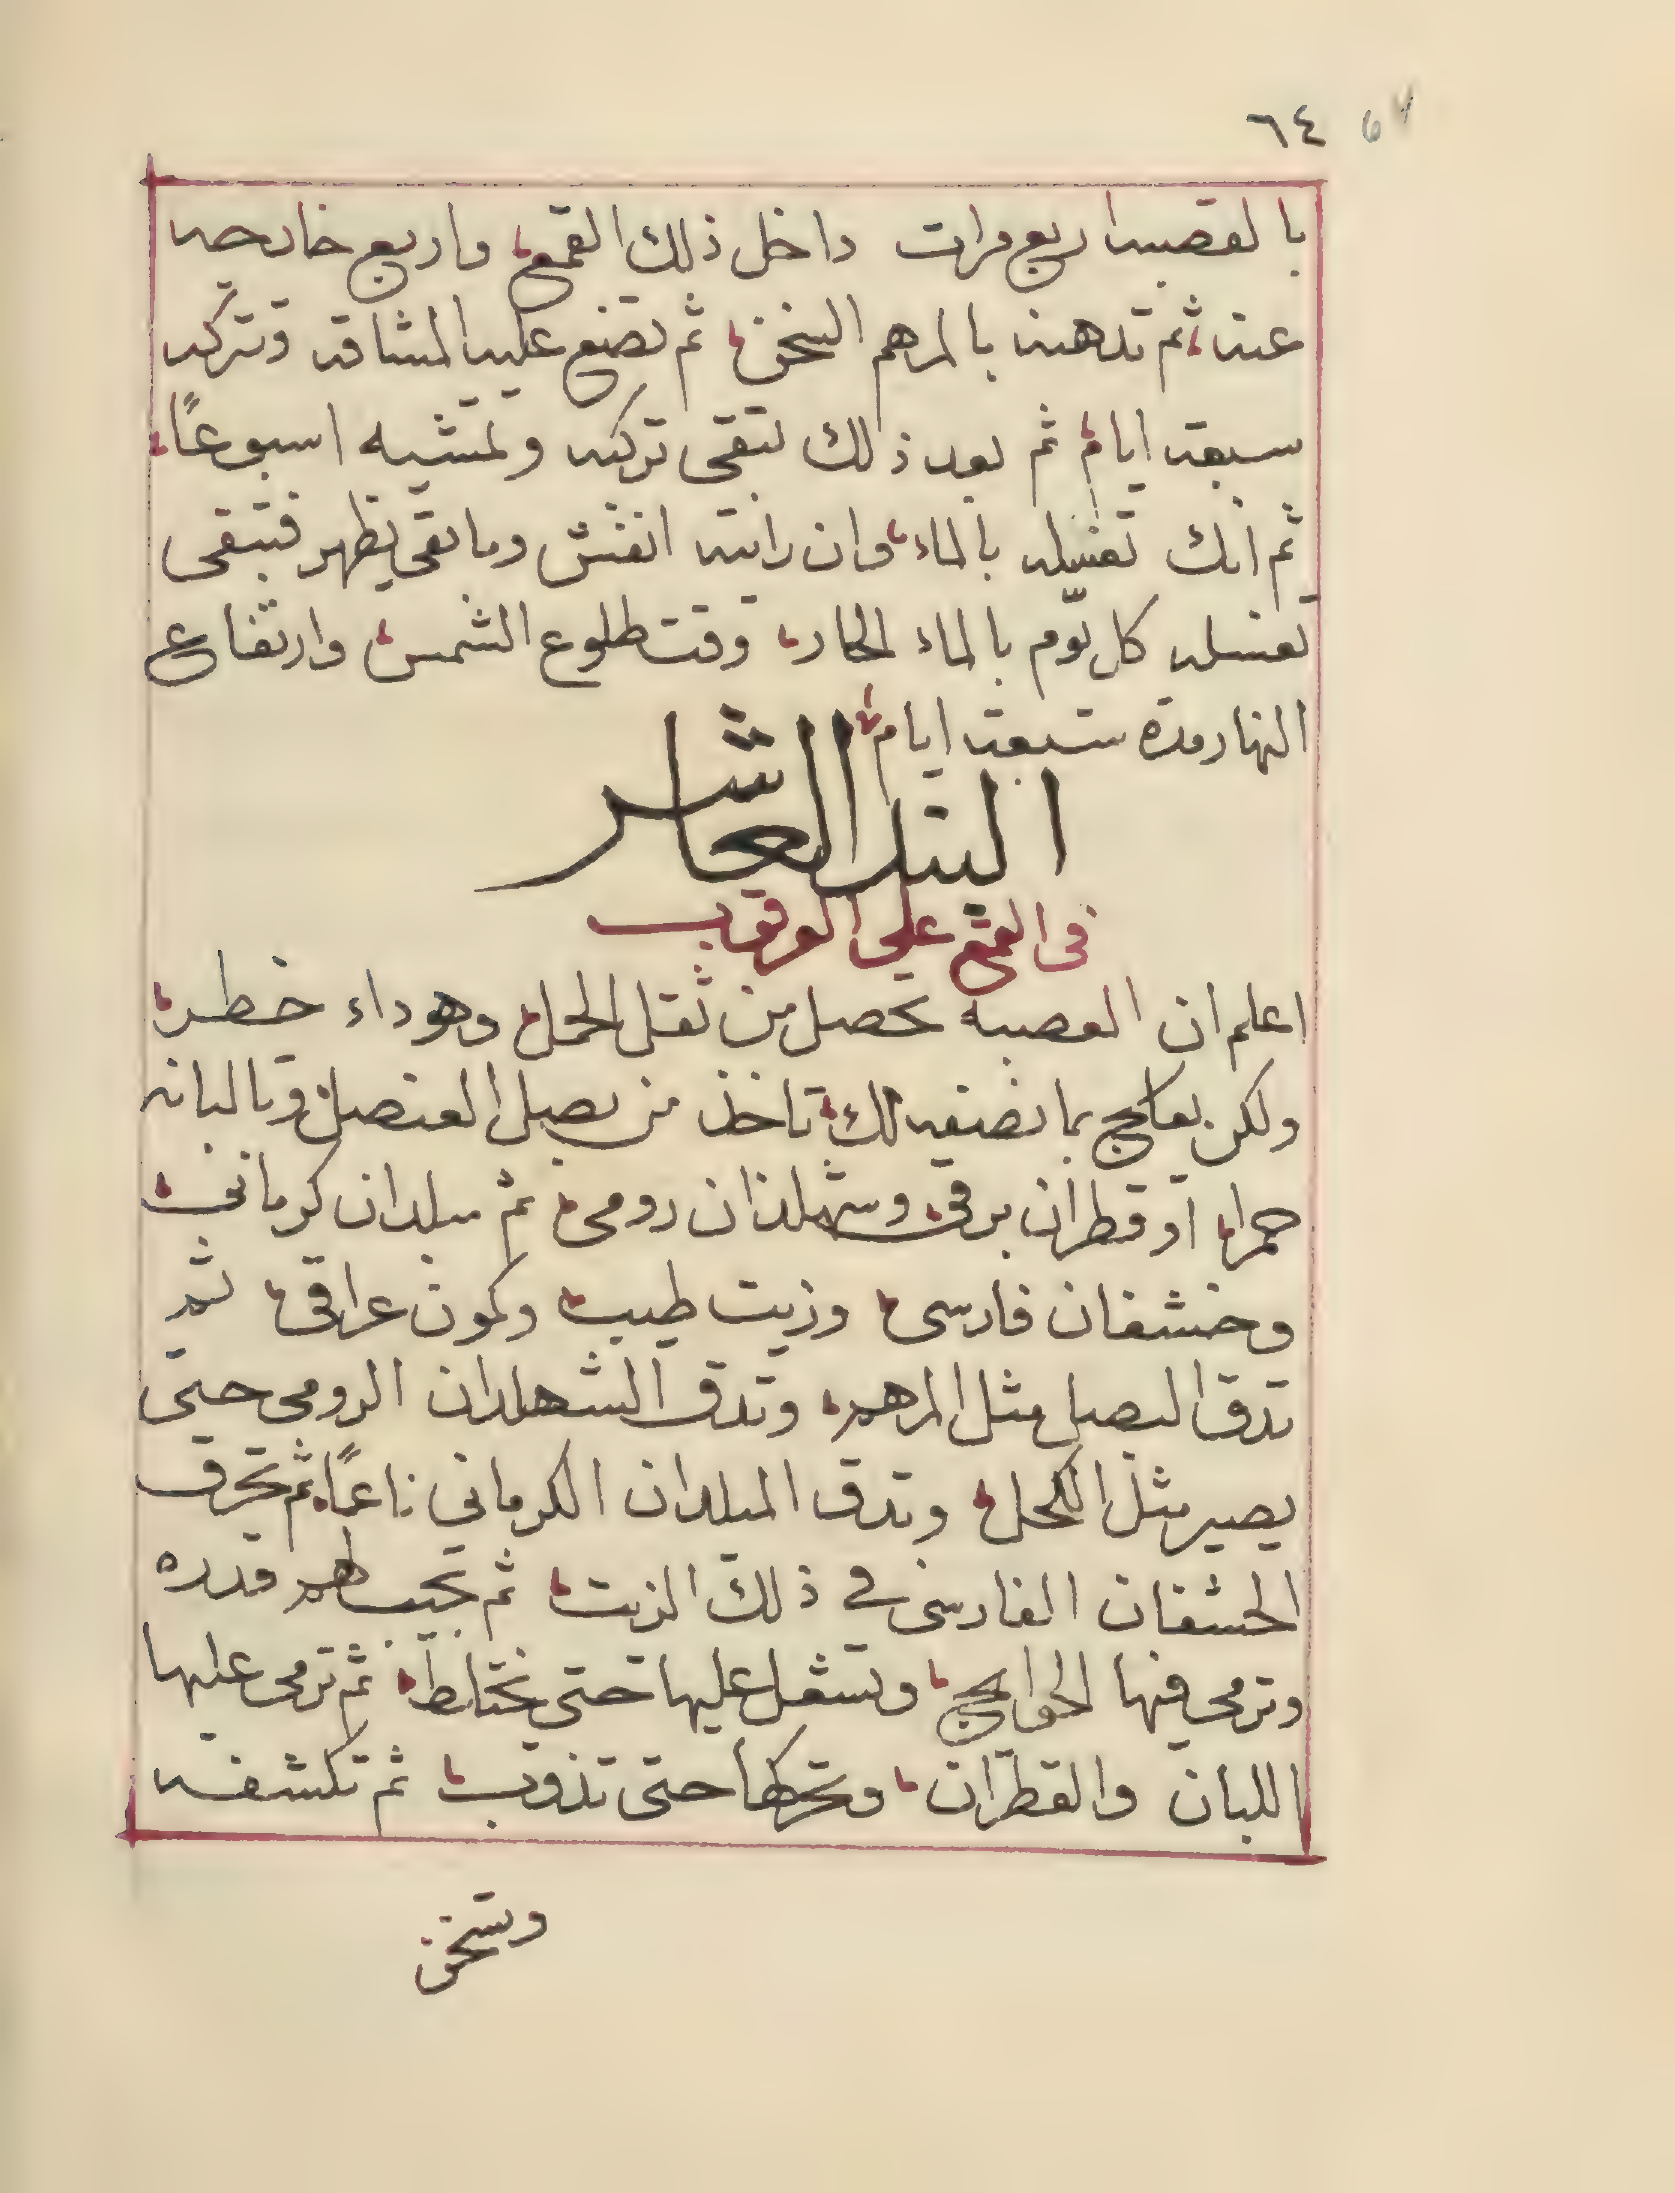 ٦٤ 64
بالقصبه اربع مرات داخل ذلك القمع واربع خارجه
عنه ثم تدهنه بالمرهم السخن ثم تضع عليه المشاقه وتركه
سبعة ايام ثم بعد ذلك تبقى تركبه وتمشيه اسبوعًا
ثم انك تغسله بالماء وان رايته انفش وما بقى يظهر فتبقى
تغسله كل يوم بالماء الحار وقت طلوع الشمس وارتفاع
النهار مدة سبعة ايام
البيت العاشر
فى القمع على العرقوب
اعلم ان العصبيه تحصل من ثقل الحمل وهو داء خطر
ولكن يعالج بما نصفه لك تاخذ من بصل العنصل وبالبانه
حمرا او قطران برقى وشهلذان رومى ثم ميلدان كرمانى
وخشفان فارسى وزيت طيب وكمون عراقى ثم
تدق البصل مثل المرهم وتدق الشهلدان الرومى حتى
يصير مثل الكحل وتدق الميلدان الكرمانى ناعمًا ثم تحرق
الخشفان الفارسى فى ذلك الزيت ثم تجيب لهم قدره
وترمى فيها الحوايج وتشعل عليها حتى يختلط ثم ترمى عليها
اللبان والقطران وتحركها حتى تذوب ثم تكشفه
وتسخن